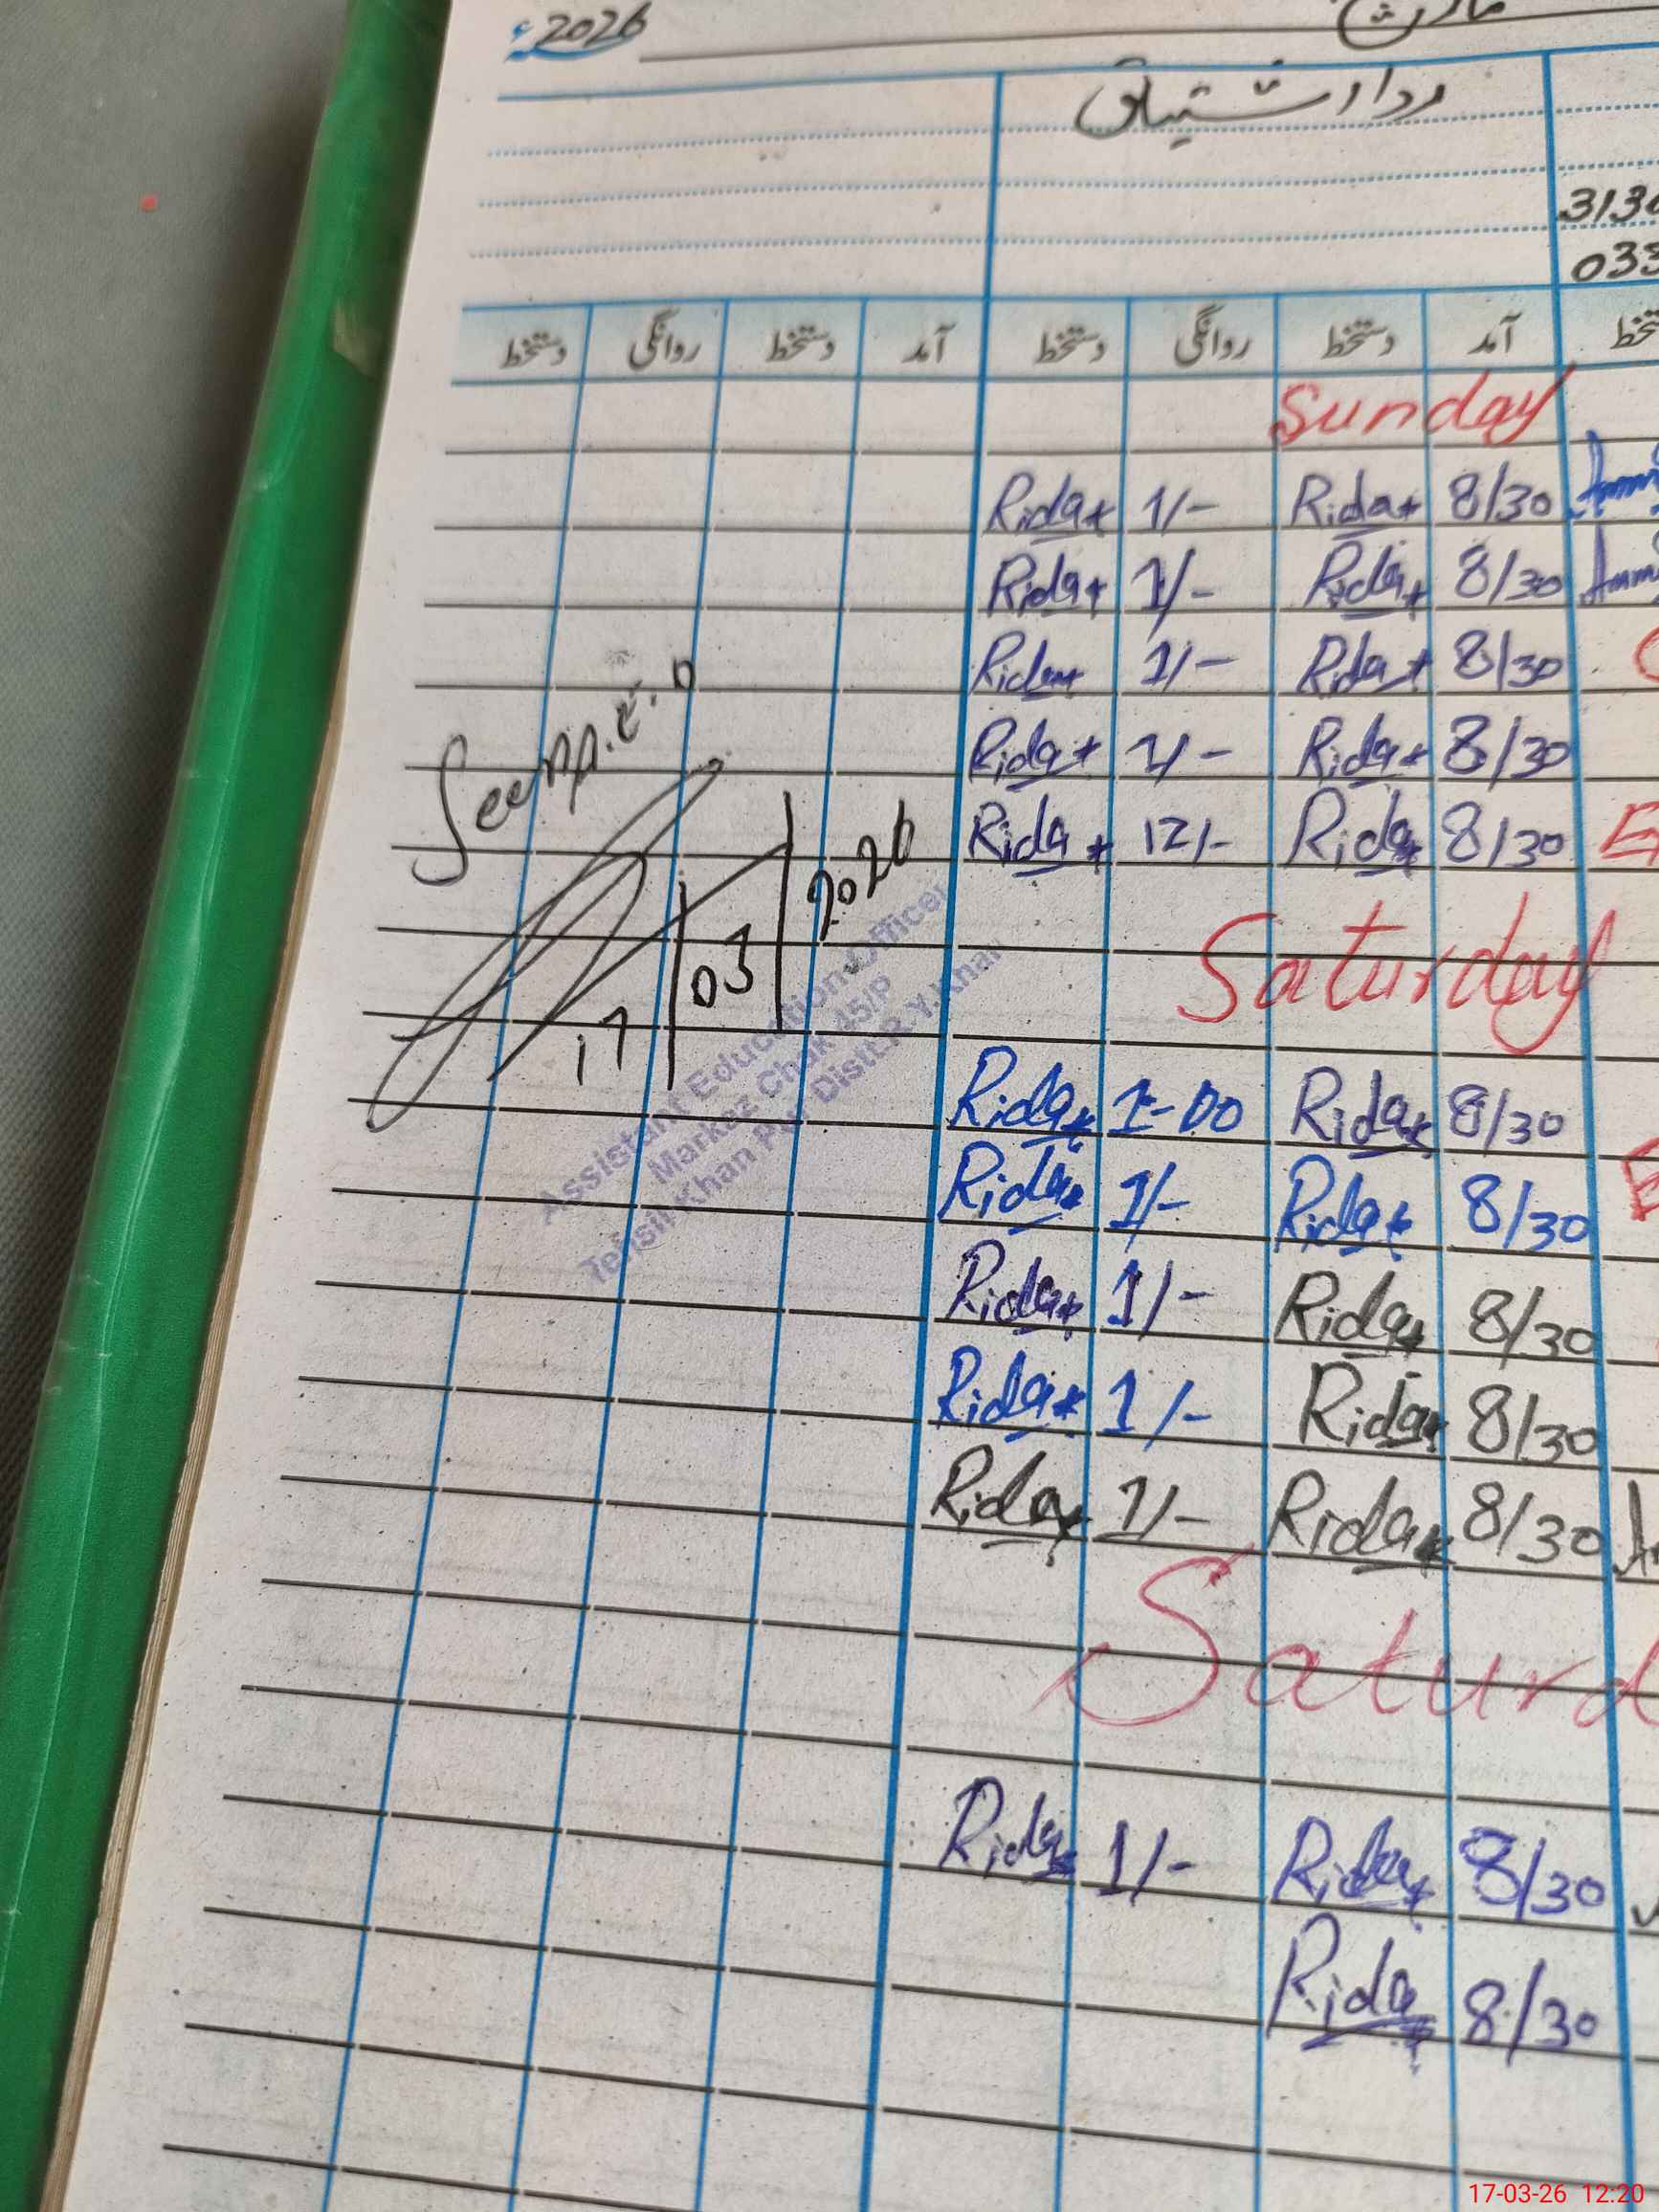 2026ء مارچ
ردا اشتیاق
3130
033
آمد دستخط روانگی دستخط آمد دستخط روانگی دستخط
Sunday
Rida 1/- Rida 8/30
Rida 1/- Rida 8/30
Rida 1/- Rida 8/30
Rida 1/- Rida 8/30
Rida 12/- Rida 8/30
Saturday
Rida 1-00 Rida 8/30
Rida 1/- Rida 8/30
Rida 1/- Rida 8/30
Rida 1/- Rida 8/30
Rida 1/- Rida 8/30
Saturd
Rida 1/- Rida 8/30
Rida 8/30
Seen
17/03/2026
Assistant Education Officer
Markaz Chak 45/P
Tehsil Khan Pur Distt. R.Y.Khan
17-03-26 12:20